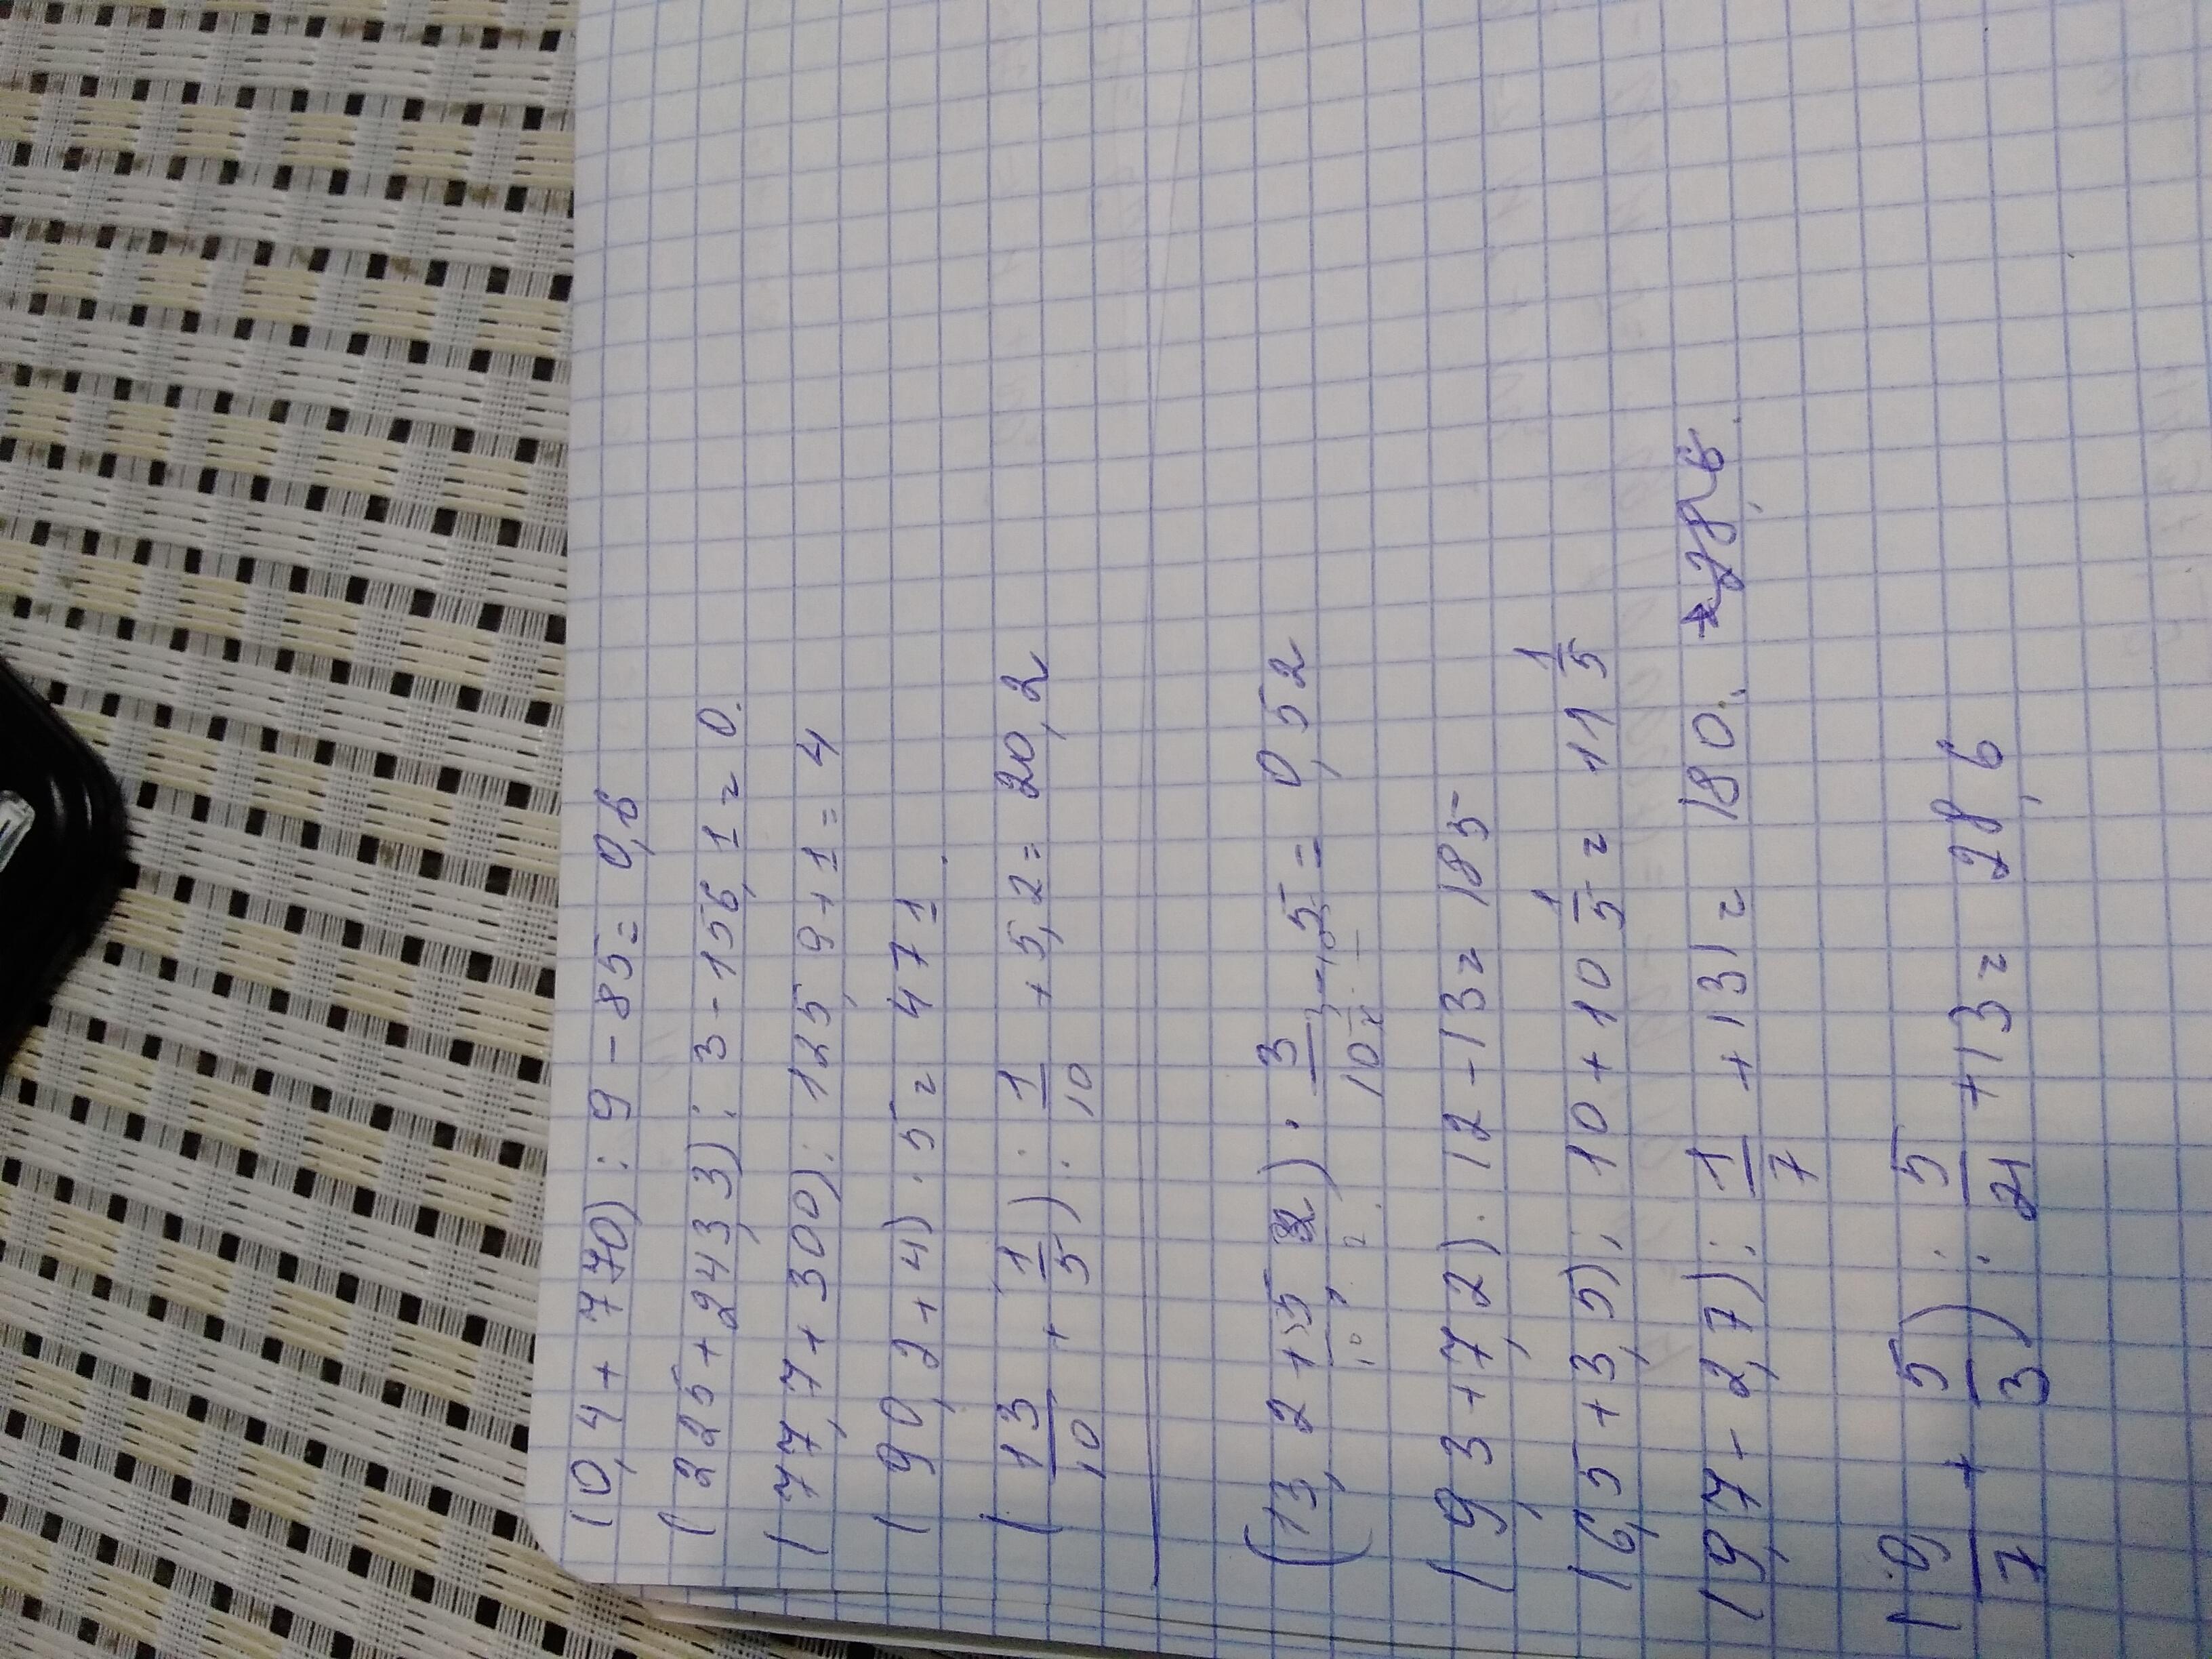 (0,4 + 770) : 9 - 85 = 0,6
(225 + 243,3) : 3 - 156,1 = 0.
(77,7 + 300) : 125,9 + 1 = 4
(90,2 + 4) · 5 = 471
(13/10 + 1/5) : 1/10 + 5,2 = 20,2
(13,2 + 15 2) · 3/10 - 5 = 0,52
(9,3 + 7,2) · 12 - 13 = 185
(6,5 + 3,5) : 10 + 10 1/5 = 11 1/5
(9,7 - 2,7) : 1/7 + 131 = 180.
(9/7 + 5/3) : 5/21 + 13 = 28,6